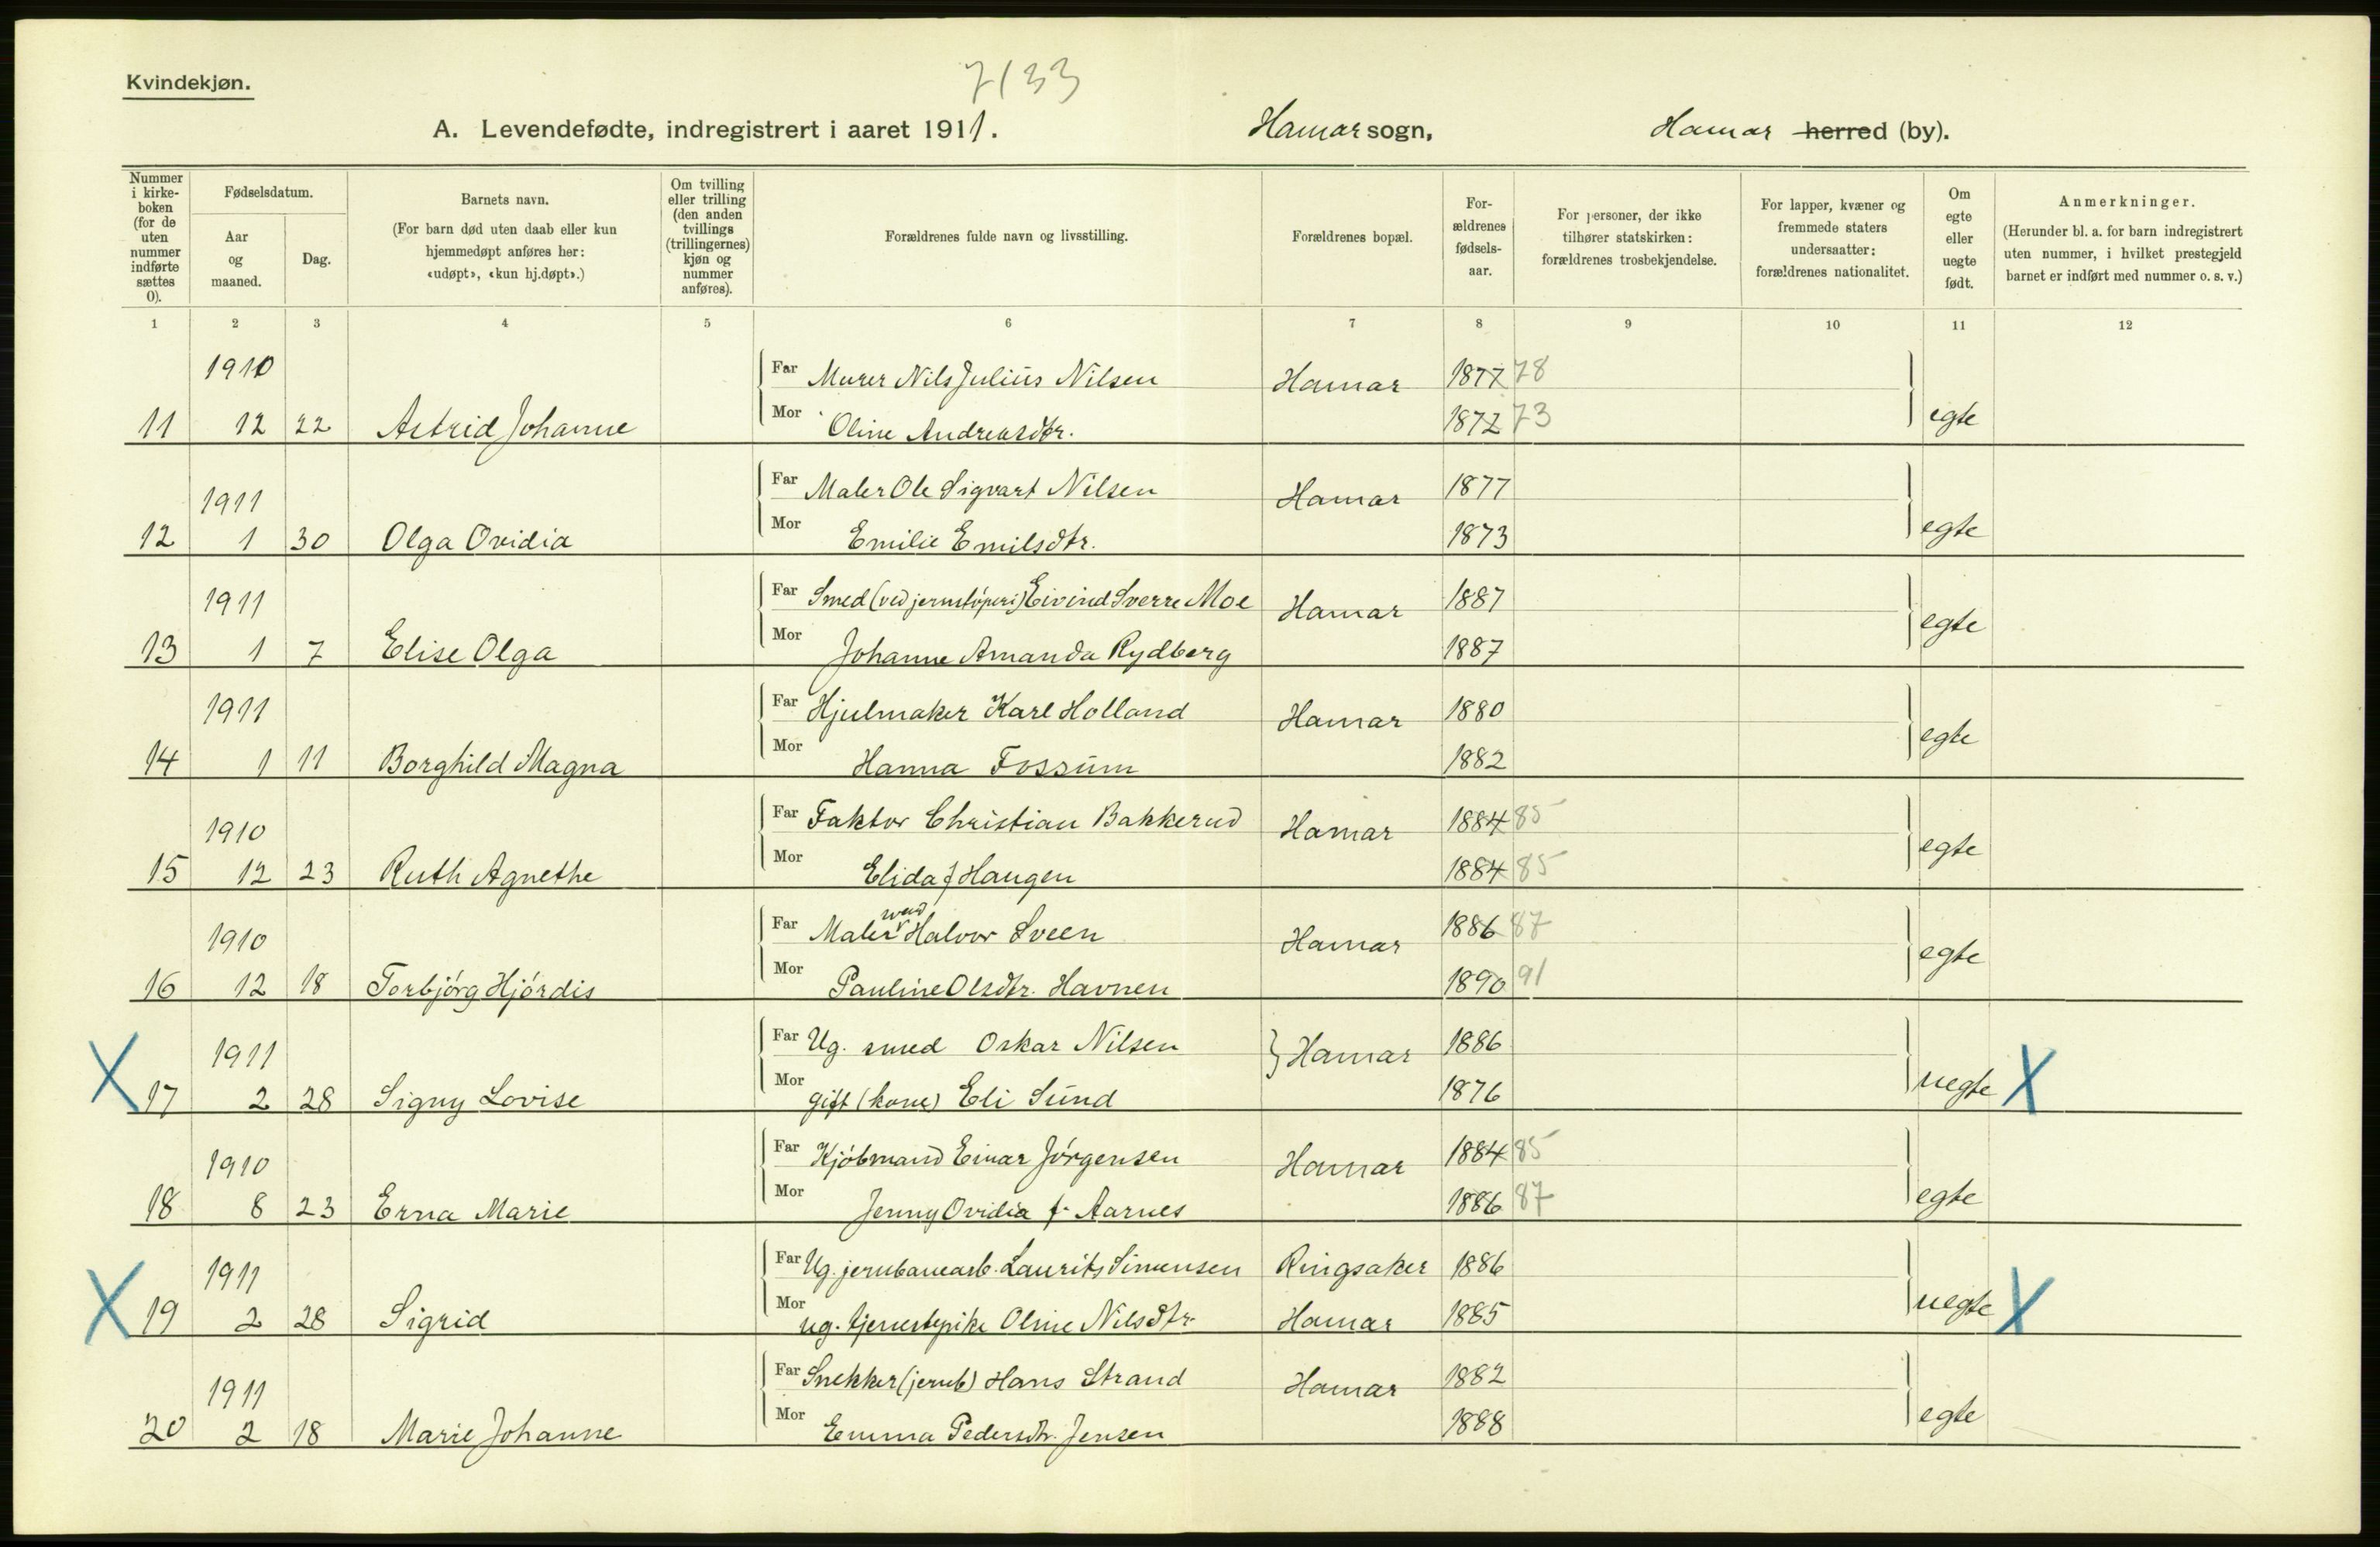 7133
Kvindekjøn.
A. Levendefødte, indregistrert i aaret 1911. Hamar sogn, Hamar herred (by).
Nummer i kirke-boken (for de uten nummer indførte sættes 0).
Fødselsdatum.
Aar og maaned.
Dag.
Barnets navn.
(For barn død uten daab eller kun hjemmedøpt anføres her: «udøpt», «kun hj.døpt».)
Om tvilling eller trilling (den anden tvillings (trillingernes) kjøn og nummer anføres).
Forældrenes fulde navn og livsstilling.
Forældrenes bopæl.
For-ældrenes fødsels-aar.
For personer, der ikke tilhører statskirken: forældrenes trosbekjendelse.
For lapper, kvæner og fremmede staters undersaatter: forældrenes nationalitet.
Om egte eller uegte født.
Anmerkninger.
(Herunder bl. a. for barn indregistrert uten nummer, i hvilket prestegjeld barnet er indført med nummer o. s. v.)
1 2 3 4 5 6 7 8 9 10 11 12
1910 Far Murer Nils Julius Nilsen Hamar 1877 78
11 12 22 Astrid Johanne Mor Oline Andreasdtr. 1872 73 egte
1911 Far Maler Ole Sigvart Nilsen Hamar 1877
12 1 30 Olga Ovidia Mor Emilie Emilsdtr. 1873 egte
1911 Far Smed (ved jernstøperi) Eivind Sverre Moe Hamar 1887
13 1 7 Elise Olga Mor Johanne Amanda Rydberg 1887 egte
1911 Far Hjulmaker Karl Holland Hamar 1880
14 1 11 Borghild Magna Mor Hanna Fossum 1882 egte
1910 Far Faktor Christian Bakkerud Hamar 1884 85
15 12 23 Ruth Agnethe Mor Elida f Haugen 1884 85 egte
1910 Far Maler Halvor Sveen Hamar 1886 87
16 12 18 Torbjørg Hjørdis Mor Pauline Olsdtr. Havnen 1890 91 egte
1911 Far Ug. smed Oskar Nilsen Hamar 1886
X 17 2 28 Signy Lovise Mor gift (kone) Eli Sund 1876 uegte X
1910 Far Kjøbmand Einar Jørgensen Hamar 1884 85
18 8 23 Erna Marie Mor Jenny Ovidia f. Aarnes 1886 87 egte
1911 Far Ug. jernbanearb. Laurits Simensen Ringsaker 1886
X 19 2 28 Sigrid Mor ug. tjenestepike Oline Nilsdtr. Hamar 1885 uegte X
1911 Far Snekker (jernb) Hans Strand Hamar 1882
20 2 18 Marie Johanne Mor Emma Pedersdtr. Jensen 1888 egte